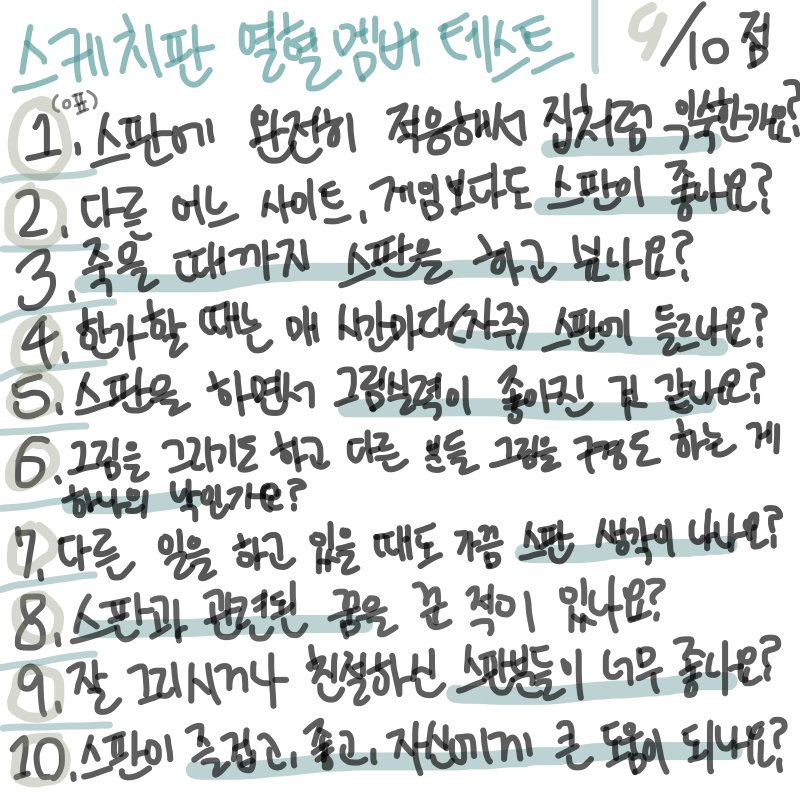 스케치판 열혈멤버 테스트 9/10점
(야호)
1. 스판에 완전히 적응해서 집처럼 익숙한가요?
2. 다른 어느 사이트, 게임보다도 스판이 좋나요?
3. 죽을 때까지 스판을 하고 싶나요?
4. 한가할 때는 매 시간마다(자주) 스판에 들르나요?
5. 스판을 하면서 그림실력이 좋아진 것 같나요?
6. 그림을 그리기도 하고 다른 분들 그림을 구경도 하는 게
하나의 낙인가요?
7. 다른 일을 하고 있을 때도 가끔 스판 생각이 나나요?
8. 스판과 관련된 꿈을 꾼 적이 있나요?
9. 잘 그리시거나 친절하신 스판분들이 너무 좋나요?
10. 스판이 즐겁고, 좋고, 자신에게 큰 도움이 되나요?